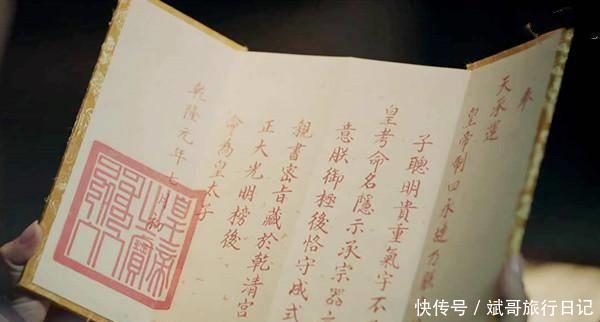 奉
天承運
皇帝制曰永璉乃朕
子聰明貴重氣宇不
皇考命名隱示承宗器之
意朕御極後恪守成式
親書密旨藏於乾清宮
正大光明榜後
命為皇太子
乾隆元年七月初
皇帝之寶
快传号 / 斌哥旅行日记